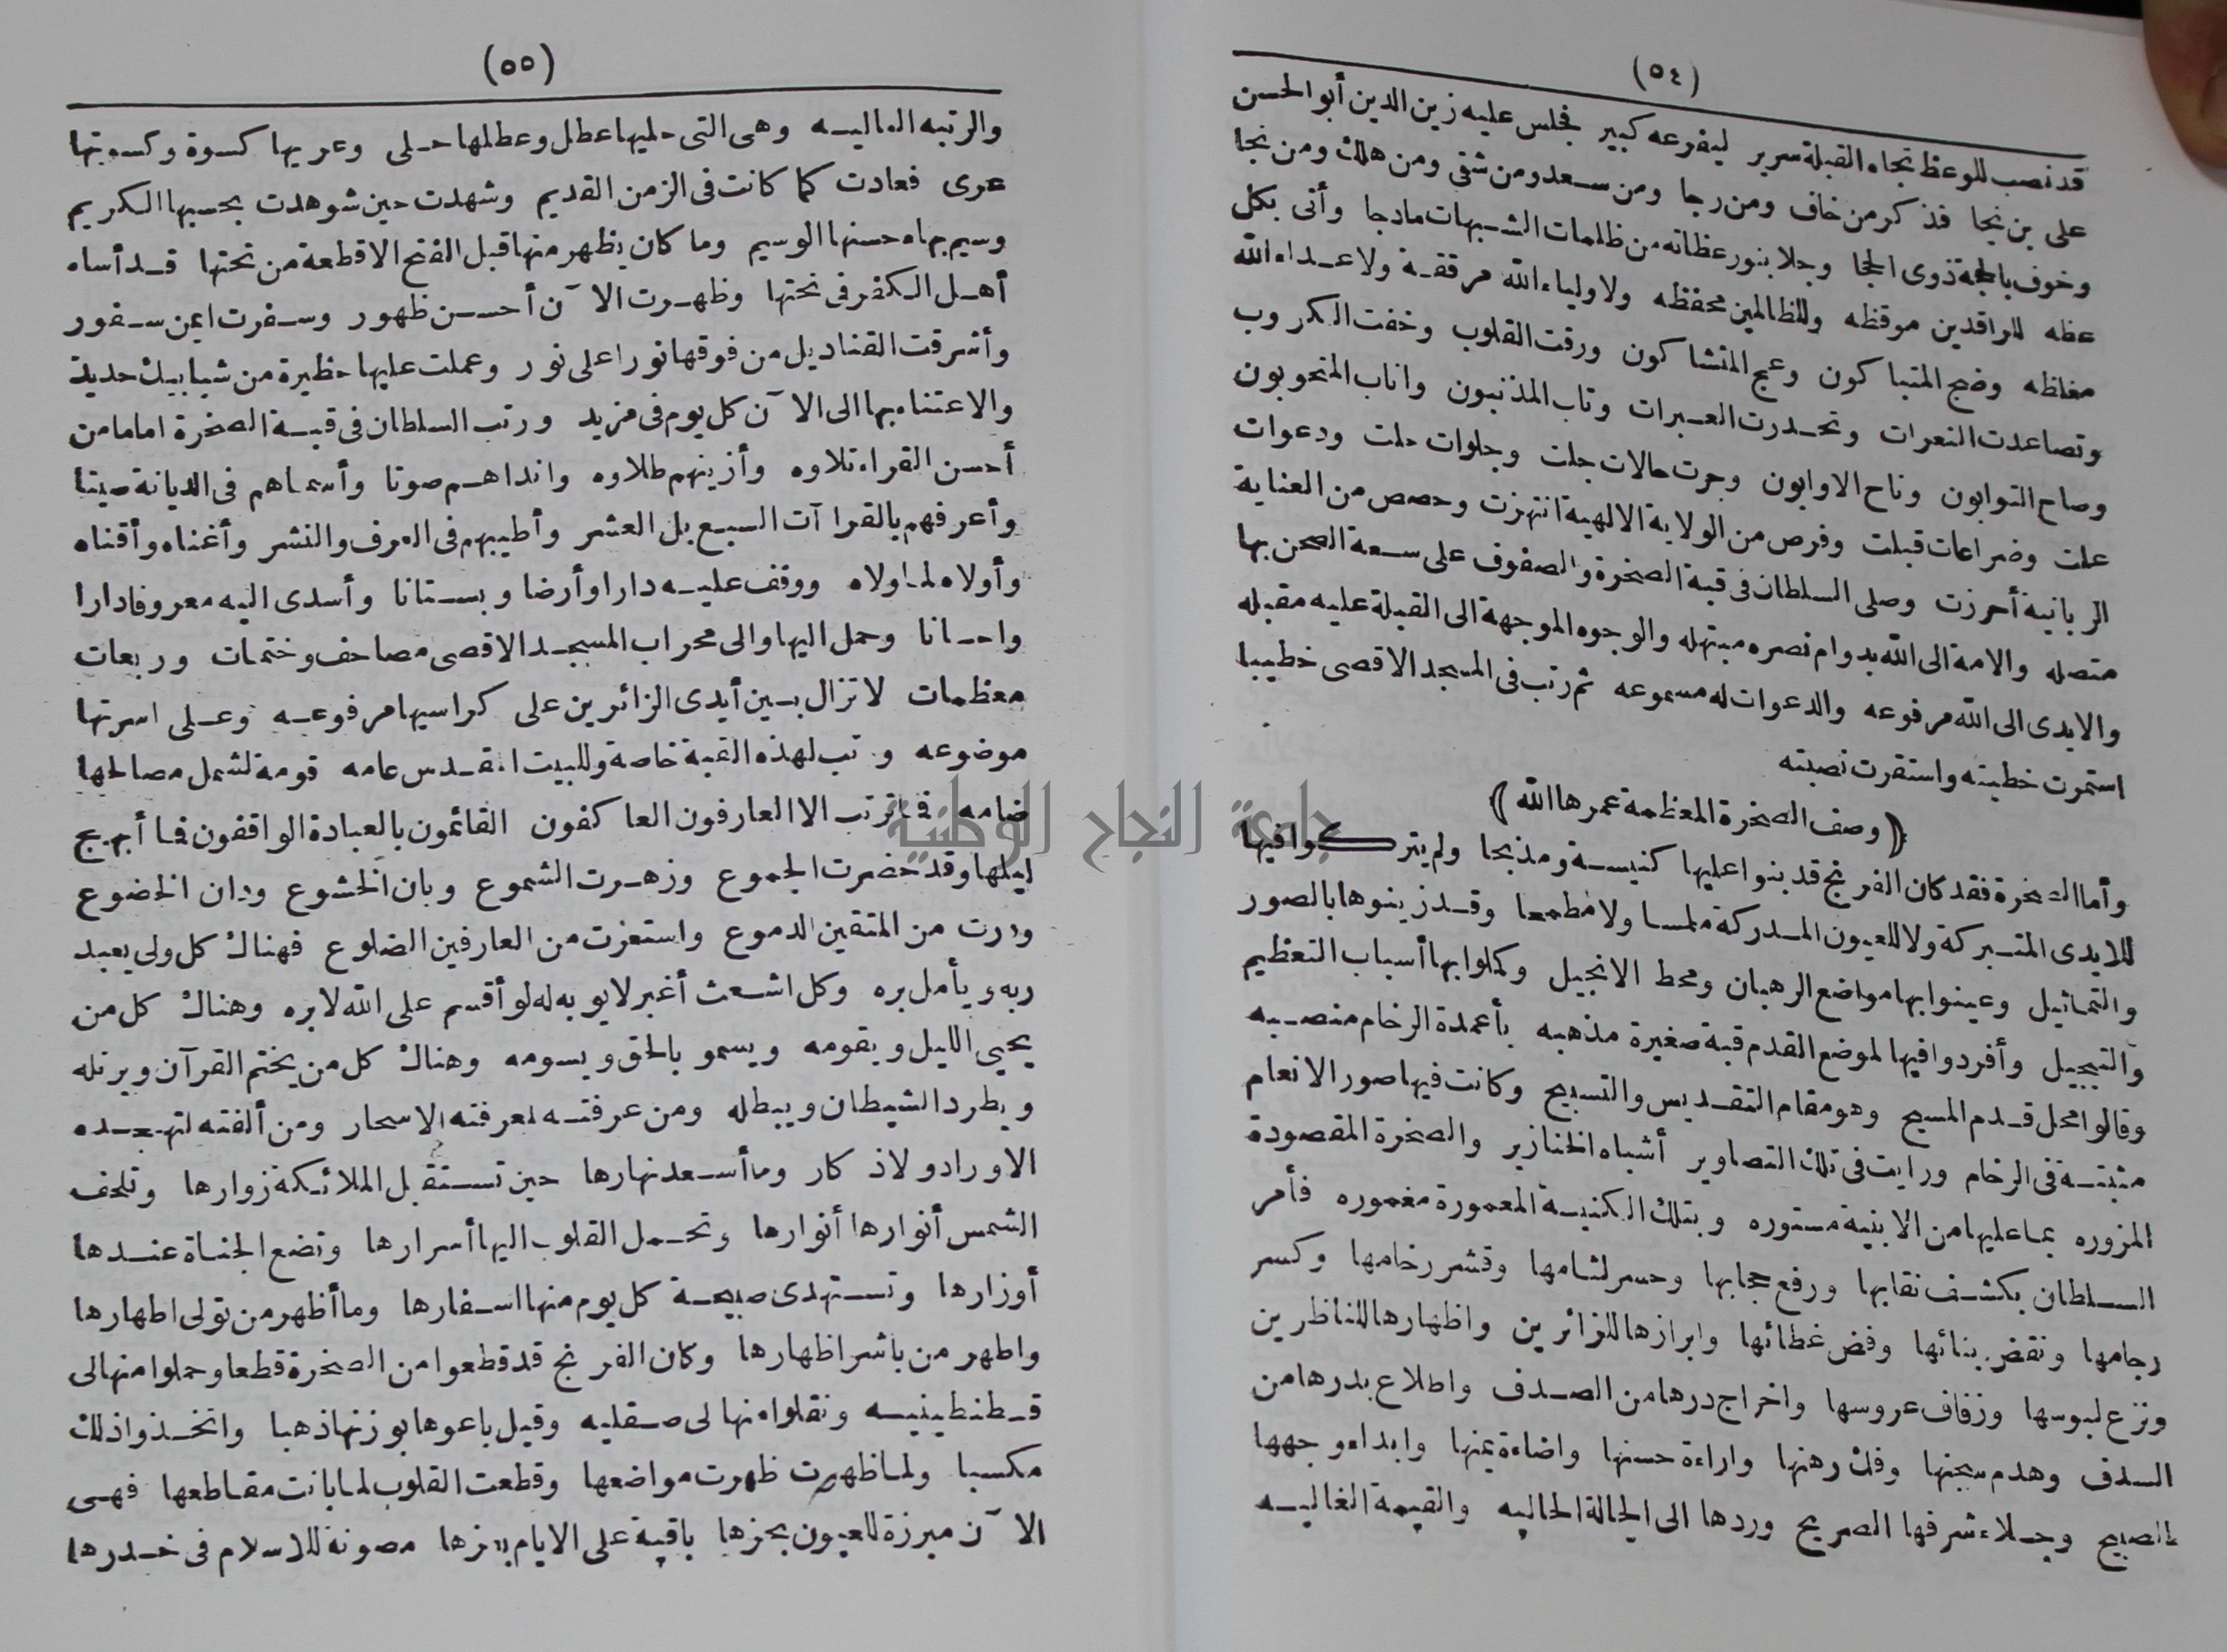 (٥٤)
قد نصب للوعظ تجاه القبلة سرير ليفرعه كبير فجلس عليه زين الدين أبو الحسن
على بن نجا فذكر من خاف ومن رجا ومن سعد ومن شقى ومن هلك ومن نجا
وخوف بالحجة ذوى الحجا وجلا بنور عظاته من ظلمات الشبهات ما دجا وأتى بكل
عظه للراقدين موقظه وللظالمين محفظه ولاولياء الله مرققة ولاعداء الله
مغلظه وضج المتباكون وعج المتشاكون ورقت القلوب وخفت الكروب
وتصاعدت النعرات وتحدرت العبرات وتاب المذنبون واناب المتحوبون
وصاح التوابون وناح الاوابون وجرت حالات جلت وجلوات حلت ودعوات
علت وضراعات قبلت وفرص من الولاية الالهية انتهزت وحصص من العناية
الربانية أحرزت وصلى السلطان فى قبة الصخرة والصفوف على سعة الصحن بها
متصله والامة الى الله بدوام نصره مبتهله والوجوه الموجهة الى القبلة عليه مقبله
والايدى الى الله مرفوعه والدعوات له مسموعه ثم رتب فى المسجد الاقصى خطيبا
استمرت خطبته واستقرت نصبته
(وصف الصخرة المعظمة عمرها الله)
وأما الصخرة فقد كان الفرنج قد بنوا عليها كنيسة ومذبحا ولم يتركوا فيها
للايدى المتبركة ولا للعيون المدركة ملمسا ولا مطمحا وقد زينوها بالصور
والتماثيل وعينوا بها مواضع الرهبان ومحط الانجيل وكملوا بها أسباب التعظيم
والتبجيل وأفردوا فيها لموضع القدم قبة صغيرة مذهبه بأعمدة الرخام منصبه
وقالوا محل قدم المسيح وهو مقام التقديس والتسبيح وكانت فيها صور الانعام
مثبتة فى الرخام ورايت فى تلك التصاوير أشباه الخنازير والصخرة المقصودة
المزوره بما عليها من الابنية مستوره وبتلك الكنيسة المعمورة مغموره فأمر
السلطان بكشف نقابها ورفع حجابها وحسر لثامها وقشر رخامها وكسر
رجامها ونقض بنائها وفض غطائها وابرازها للزائرين واظهارها للناظرين
ونزع لبوسها وزفاف عروسها واخراج درها من الصدف واطلاع بدرها من
السدف وهدم سجنها وفك رهنها واراءة حسنها واضاءة يمنها وابداء وجهها
الصبيح وجلاء شرفها الصريح وردها الى الحالة الحاليه والقيمة الغاليه
(٥٥)
والرتبه العاليه وهى التى حليها عطل وعطلها حلى وعريها كسوة وكسوتها
عرى فعادت كما كانت فى الزمن القديم وشهدت حين شوهدت بحسبها الكريم
وسيم بهاء حسنها الوسيم وما كان يظهر منها قبل الفتح الا قطعة من تحتها قد أساء
أهل الكفر فى نحتها وظهرت الآن أحسن ظهور وسفرت ايمن سفور
وأشرقت القناديل من فوقها نورا على نور وعملت عليها حظيرة من شبابيك حديد
والاعتناء بها الى الآن كل يوم فى مزيد ورتب السلطان فى قبة الصخرة اماما من
أحسن القراء تلاوه وأزينهم طلاوه وانداهم صوتا وأسماهم فى الديانة صيتا
وأعرفهم بالقرا آت السبع بل العشر وأطيبهم فى العرف والنشر وأغناه وأقناه
وأولاه لما ولاه ووقف عليه دارا وأرضا وبستانا وأسدى اليه معروفا دارا
واحسانا وحمل اليها والى محراب المسجد الاقصى مصاحف وختمات وربعات
معظمات لا تزال بين أيدى الزائرين على كراسيها مرفوعه وعلى اسرتها
موضوعه ورتب لهذه القبة خاصة وللبيت المقدس عامه قومة لشمل مصالحها
ضامه فما رتب الا العارفون العاكفون القائمون بالعبادة الواقفون فما أبهج
ليلها وقد حضرت الجموع وزهرت الشموع وبان الخشوع ودان الخضوع
ودرت من المتقين الدموع واستعزت من العارفين الضلوع فهناك كل ولى يعبد
ربه ويأمل بره وكل اشعث أغبر لا يوبه له لو أقسم على الله لابره وهناك كل من
يحيى الليل ويقومه ويسمو بالحق ويسومه وهناك كل من يختم القرآن ويرتله
ويطرد الشيطان ويبطله ومن عرفته لمعرفته الاسحار ومن ألفته لتهجده
الاوراد والاذكار وما أسعد نهارها حين تستقبل الملائكة زوارها وتلحف
الشمس أنوارها أنوارها وتحمل القلوب اليها أسرارها وتضع الجناة عندها
أوزارها وتستهدى صبيحة كل يوم منها اسفارها وما أظهر من تولى اظهارها
واطهر من باشر اظهارها وكان الفرنج قد قطعوا من الصخرة قطعا وحملوا منها الى
قسطنطينيه ونقلوا منها الى صقليه وقيل باعوها بوزنها ذهبا واتخذوا ذلك
مكسبا ولما ظهرت ظهرت مواضعها وقطعت القلوب لما بانت مقاطعها فهى
الآن مبرزة للعيون بحزها باقية على الايام بعزها مصونة للاسلام فى خدرها
جامعة النجاح الوطنية